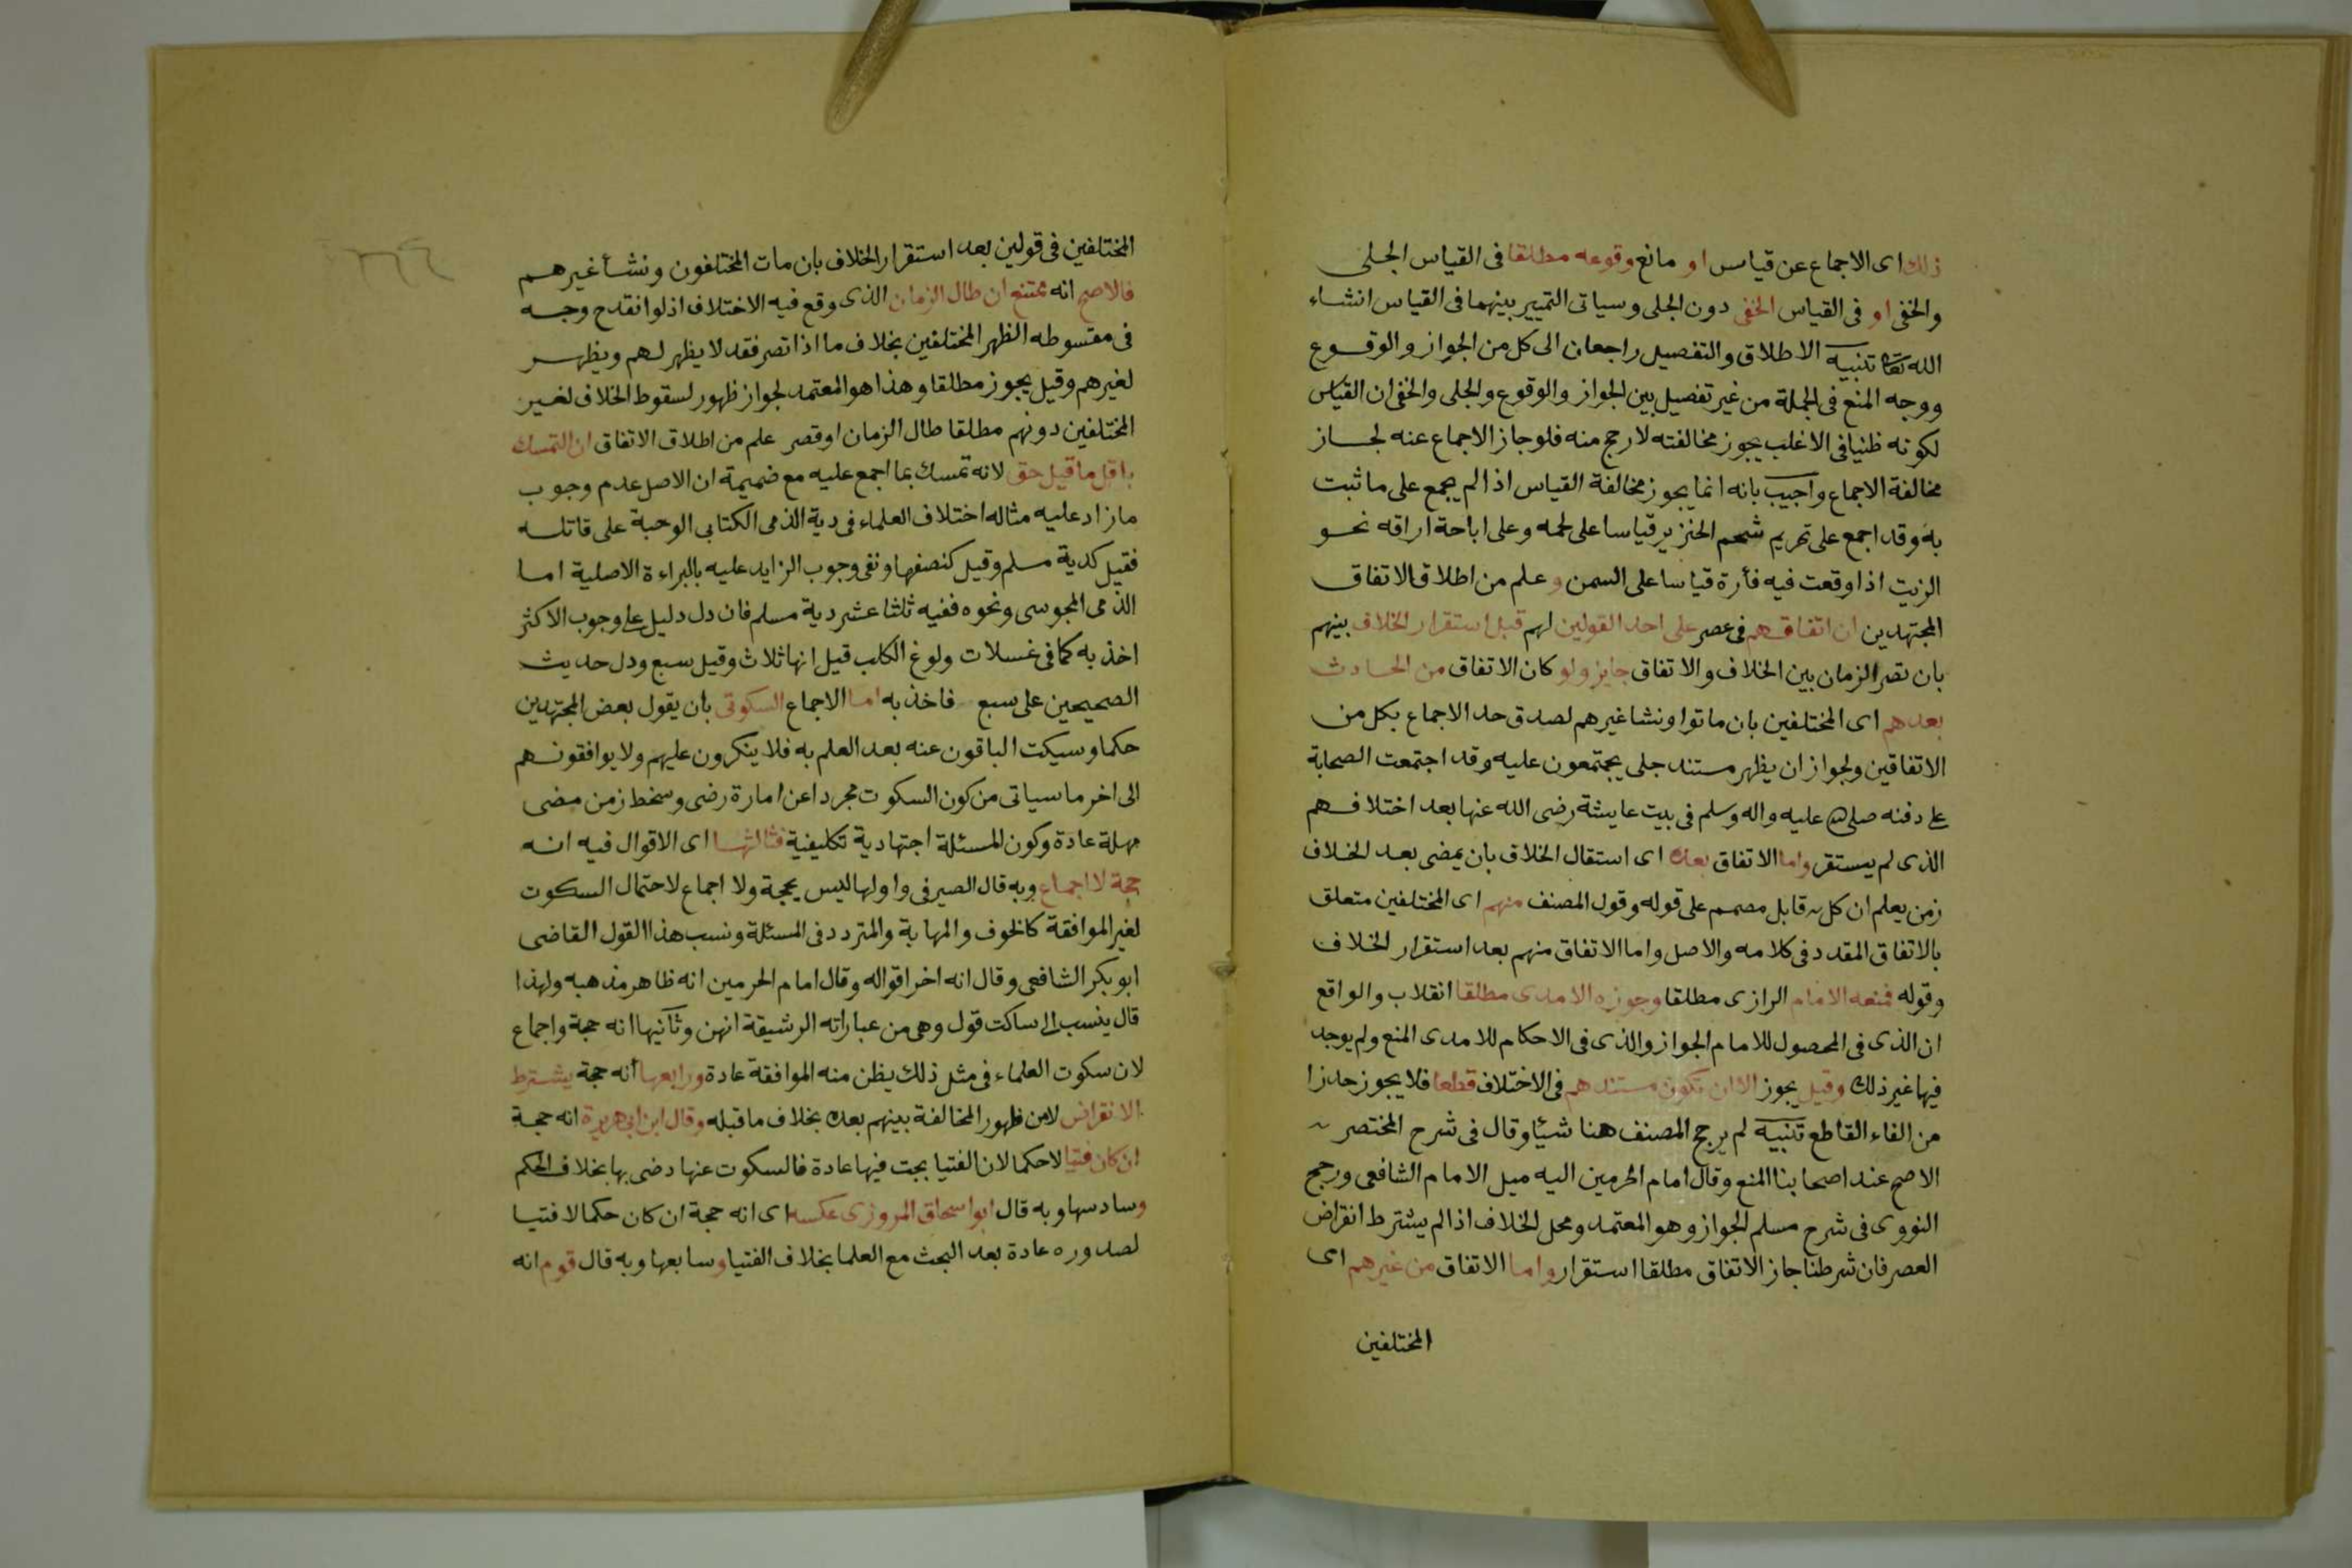 ذلك اى الاجماع عن قياس او مانع وقوعه مطلقا فى القياس الجلى
والخفى او فى القياس الخفى دون الجلى وسياتى التمييز بينهما فى القياس انشاء
الله تعا تنبيه الاطلاق والتفصيل راجعان الى كل من الجواز والوقوع
ووجه المنع فى الجملة من غير تفصيل بين الجواز والوقوع والجلى والخفى ان القياس
لكونه ظنيا فى الاغلب يجوز مخالفته لارجح منه فلو جاز الاجماع عنه لجاز
مخالفة الاجماع واجيب بانه انما يجوز مخالفة القياس اذا لم يجمع على ما ثبت
به وقد اجمع على تحريم شحم الخنزير قياسا على لحمه وعلى اباحة اراقه نحو
الزيت اذا وقعت فيه فأرة قياسا على السمن وعلم من اطلاق الاتفاق
المجتهدين ان اتفاقهم فى عصر على احد القولين لهم قبل استقرار الخلاف بينهم
بان تصر الزمان بين الخلاف والاتفاق جايز ولو كان الاتفاق من الحادث
بعدهم اى المختلفين بان ماتوا ونشا غيرهم لصدق حد الاجماع بكل من
الاتفاقين ولجواز ان يظهر مستند جلى يجتمعون عليه وقد اجتمعت الصحابة
على دفنه صلى الله عليه واله وسلم فى بيت عايشة رضى الله عنها بعد اختلافهم
الذى لم يستقر واما الاتفاق بعده اى استقال الخلاف بان يمضى بعد الخلاف
زمن يعلم ان كل قابل مصمم على قوله وقول المصنف منهم اى المختلفين متعلق
بالاتفاق المقدد فى كلامه والاصل واما الاتفاق منهم بعد استقرار الخلاف
وقوله فمنعه الامام الرازى مطلقا وجوزه الامدى مطلقا انقلاب والواقع
ان الذى فى المحصول للامام الجواز والذى فى الاحكام للامدى المنع ولم يوجد
فيها غير ذلك وقيل يجوز الا ان تكون مستندهم فى الاختلاف قطعا فلا يجوز حدزا
من الغاء القاطع تنبيه لم يرجح المصنف هنا شيئا وقال فى شرح المختصر
الاصح عند اصحابنا المنع وقال امام الحرمين اليه ميل الامام الشافعى ورجح
النووى فى شرح مسلم الجواز وهو المعتمد ومحل الخلاف اذا لم يشترط انقراض
العصر فان شرطنا جاز الاتفاق مطلقا استقرار واما الاتفاق من غيرهم اى
المختلفين
المختلفين فى قولين بعد استقرار الخلاف بان مات المختلفون ونشأ غيرهم
فالاصح انه ممتنع ان طال الزمان الذى وقع فيه الاختلاف اذ لو انقدح وجه
فى مقسوطه الظهر المختلفين بخلاف ما اذا تصر فقد لا يظهر لهم ويظهر
لغيرهم وقيل يجوز مطلقا وهذا هو المعتمد لجواز ظهور لسقوط الخلاف لغير
المختلفين دونهم مطلقا طال الزمان او قصر علم من اطلاق الاتفاق ان التمسك
باقل ما قيل حق لانه تمسك بما اجمع عليه مع ضميمة ان الاصل عدم وجوب
ما زاد عليه مثاله اختلاف العلماء فى دية الذمى الكتابى الوجبة على قاتله
فقيل كدية مسلم وقيل كنصفها ونفى وجوب الزايد عليه بالبراءة الاصلية اما
الذمى المجوسى ونحوه ففيه ثلثا عشر دية مسلم فان دل دليل على وجوب الاكثر
اخذ به كما فى غسلات ولوغ الكلب قيل انها ثلاث وقيل سبع ودل حديث
الصحيحين على سبع فاخذ به اما الاجماع السكوتى بان يقول بعض المجتهدين
حكما وسيكت الباقون عنه بعد العلم به فلا ينكرون عليهم ولا يوافقونهم
الى اخر ما سياتى من كون السكوت مجردا عن امارة رضى وسخط زمن مضى
مهلة عادة وكون المسئلة اجتهادية تكليفية فثالثها اى الاقوال فيه انه
حجة لا اجماع وبه قال الصيرفى واولها ليس بحجة ولا اجماع لاحتمال السكوت
لغير الموافقة كالخوف والمهابة والمتردد فى المسئلة ونسب هذا القول القاضى
ابو بكر الشافعى وقال انه اخر اقواله وقال امام الحرمين انه ظاهر مذهبه ولهذا
قال ينسب الى ساكت قول وهى من عباراته الرشيقة انهن وثانيها انه حجة واجماع
لان سكوت العلماء فى مثل ذلك يظن منه الموافقة عادة ورابعها أنه حجة يشترط
الانقراض لامن ظهور المخالفة بينهم بعده بخلاف ما قبله وقال ابن ابى هريرة انه حجة
ان كان فتيا لا حكما لان الفتيا بجت فيها عادة فالسكوت عنها دضى بها بخلاف الحكم
وسادسها وبه قال ابو اسحاق المروزى عكسه اى انه حجة ان كان حكما لا فتيا
لصدوره عادة بعد البحث مع العلما بخلاف الفتيا وسابعها وبه قال قوم انه